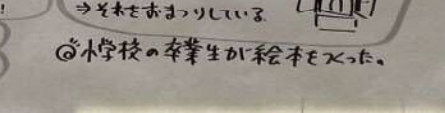 !
⇒それをおまつりしている
◎小学校の卒業生が絵本をつくった。